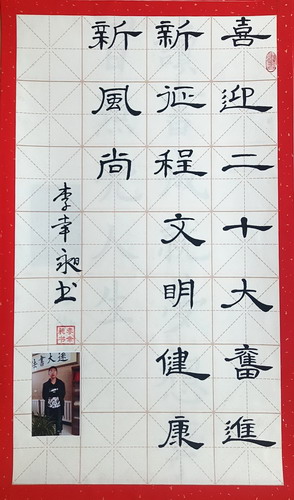 喜迎二十大奮進
新征程文明健康
新風尚
李幸昶书